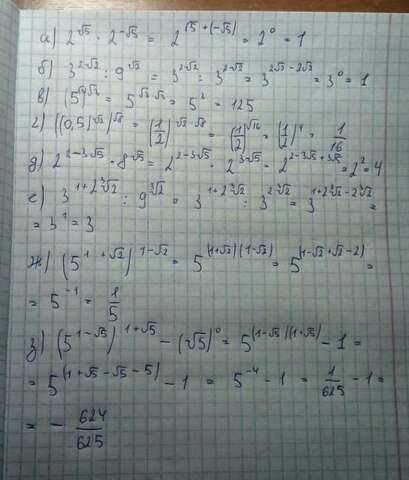 а) 2^√5 · 2^-√5 = 2^(√5 + (-√5)) = 2^0 = 1
б) 3^(2√2) : 9^√2 = 3^(2√2) : 3^(2√2) = 3^(2√2 - 2√2) = 3^0 = 1
в) (5^√2)^√2 = 5^(√2·√2) = 5^2 = 125
г) ((0,5)^√2)^√8 = (1/2)^(√2·√8) = (1/2)^√16 = (1/2)^4 = 1/16
д) 2^(2-3√5) · 8^√5 = 2^(2-3√5) · 2^(3√5) = 2^(2-3√5+3√5) = 2^2 = 4
е) 3^(1+2∛2) : 9^∛2 = 3^(1+2∛2) : 3^(2∛2) = 3^(1+2∛2-2∛2) =
= 3^1 = 3
ж) (5^(1+√2))^(1-√2) = 5^((1+√2)(1-√2)) = 5^(1-√2+√2-2) =
= 5^-1 = 1/5
з) (5^(1-√5))^(1+√5) - (√5)^0 = 5^((1-√5)(1+√5)) - 1 =
= 5^(1+√5-√5-5) - 1 = 5^-4 - 1 = 1/625 - 1 =
= - 624/625